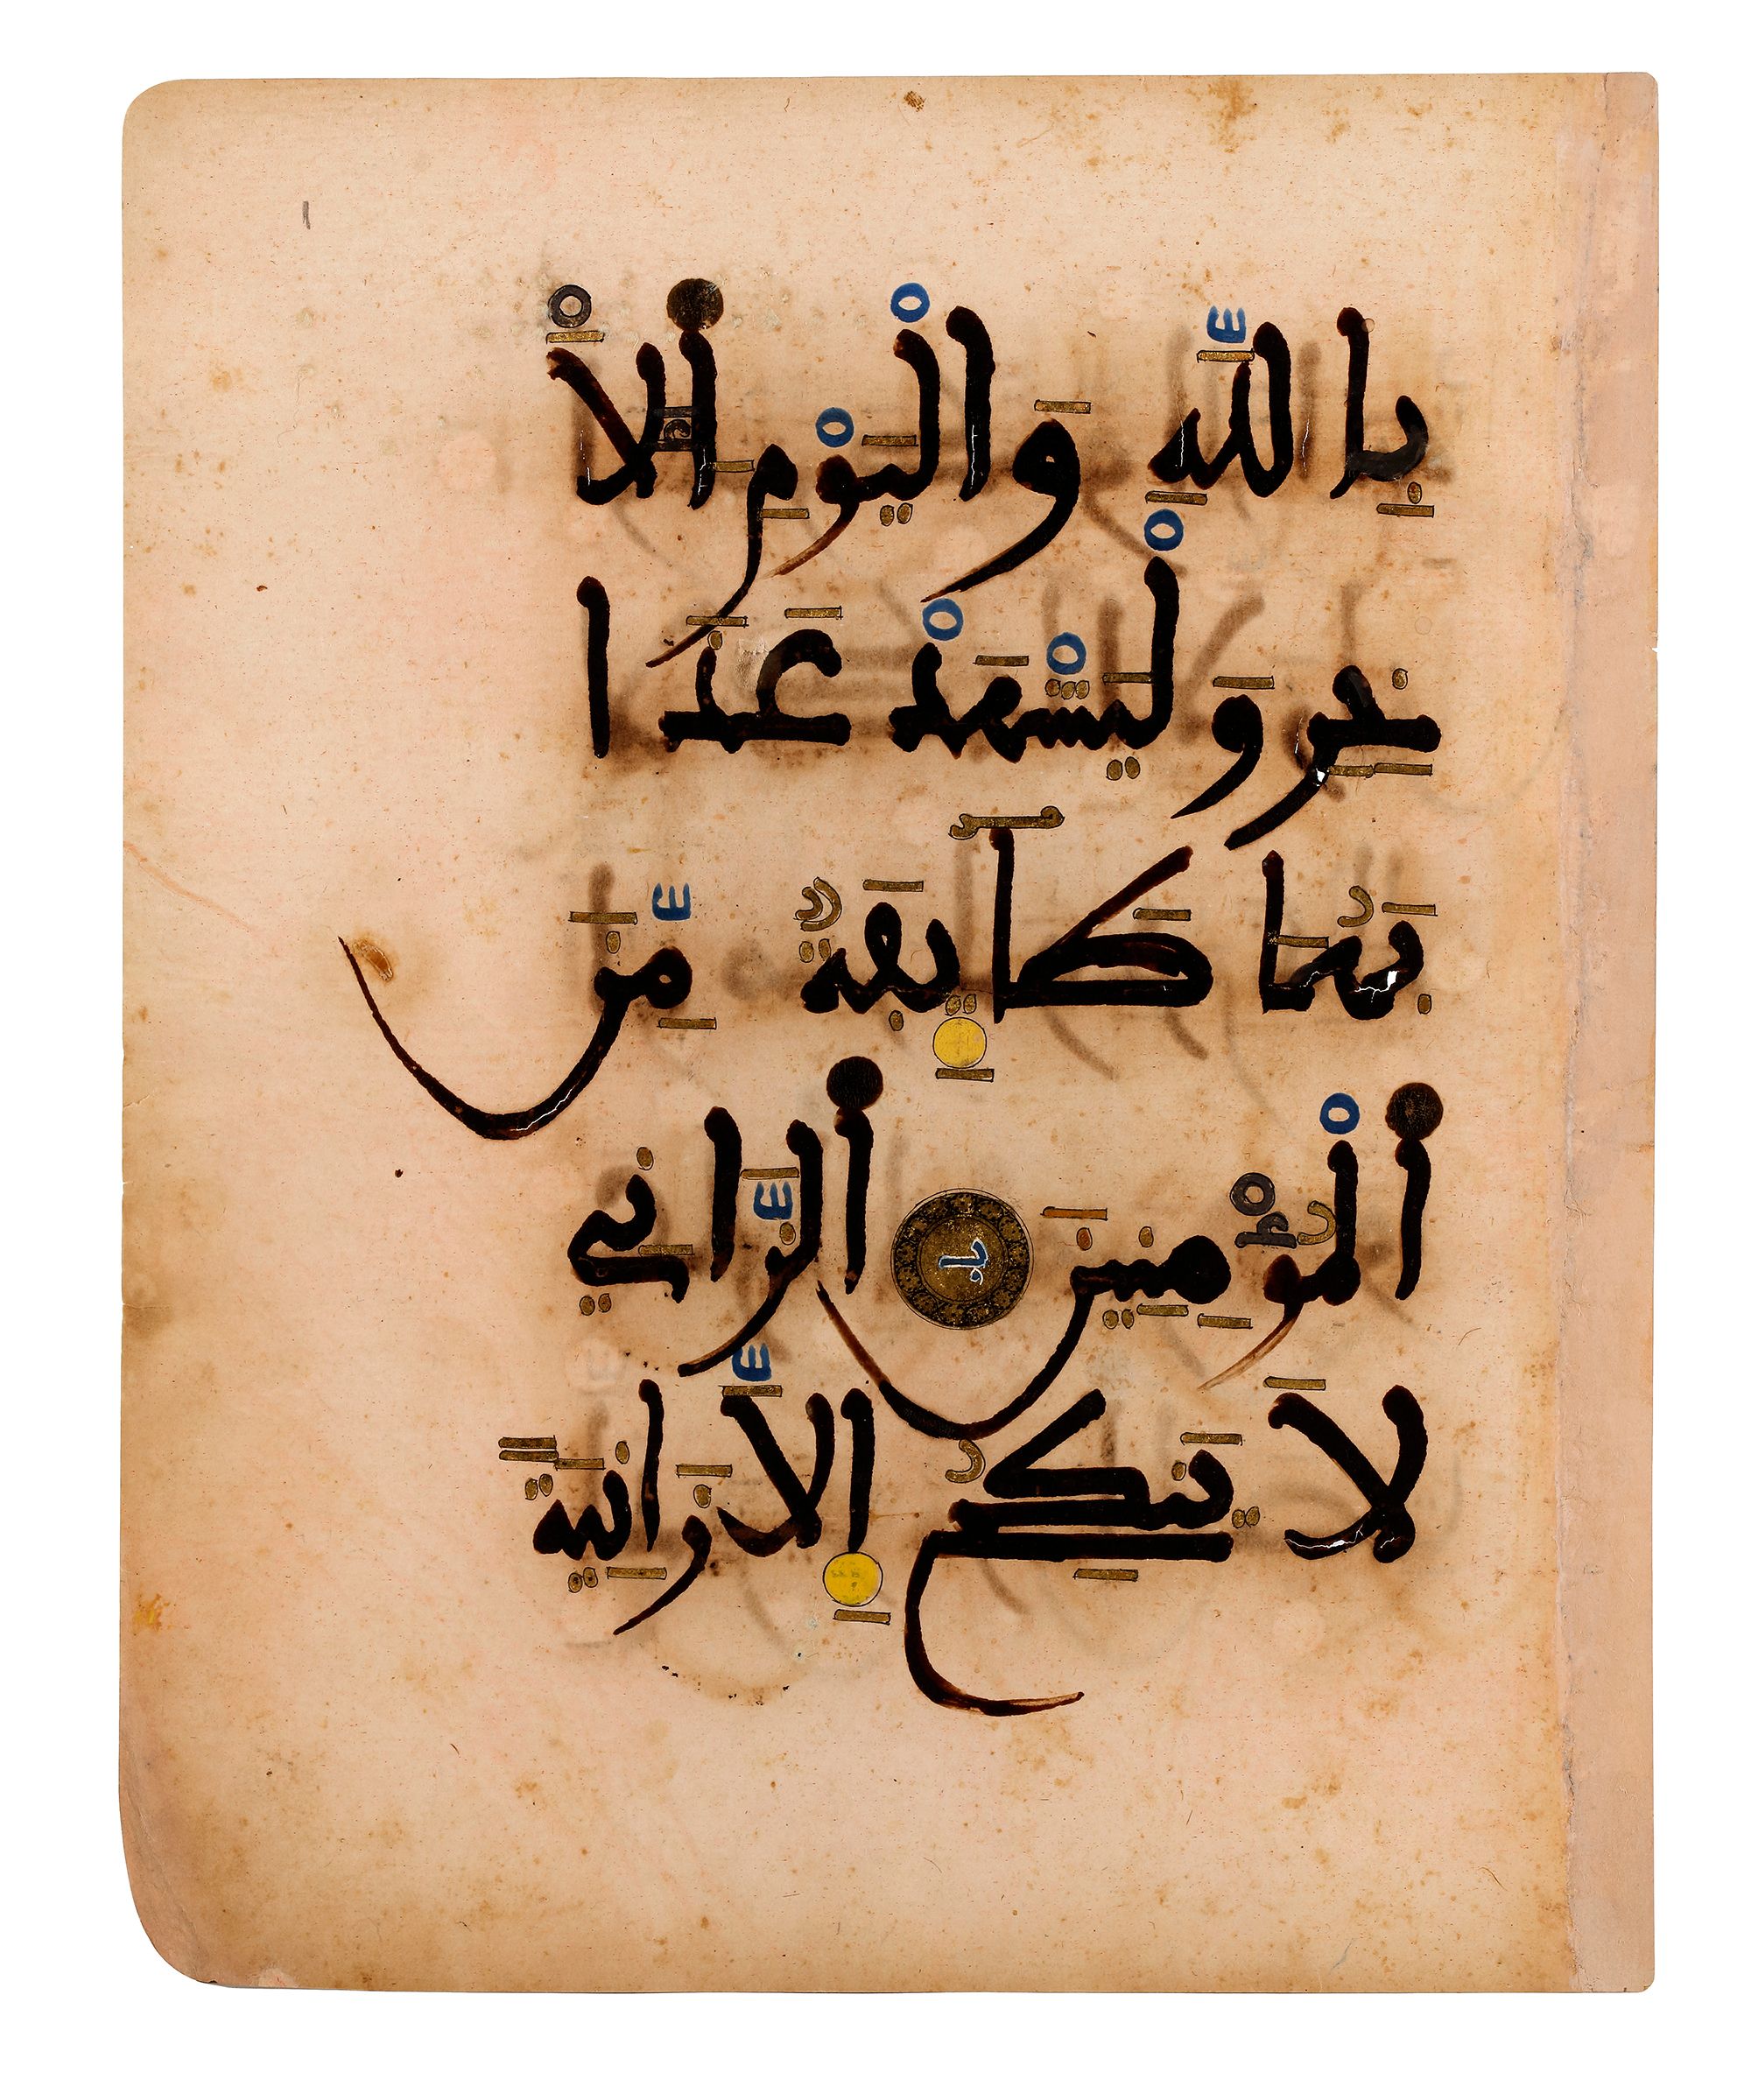 بِاللَّهِ وَالْيَوْمِ الْأَ
خِرِ وَلْيَشْهَدْ عَذَا
بَهُمَا طَآئِفَةٌ مِّنَ
الْمُؤْمِنِينَ الزَّانِي
لَا يَنكِحُ إِلَّا زَانِيَةً